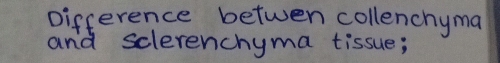 Difference betwen collenchyma
and sclerenchyma tissue;